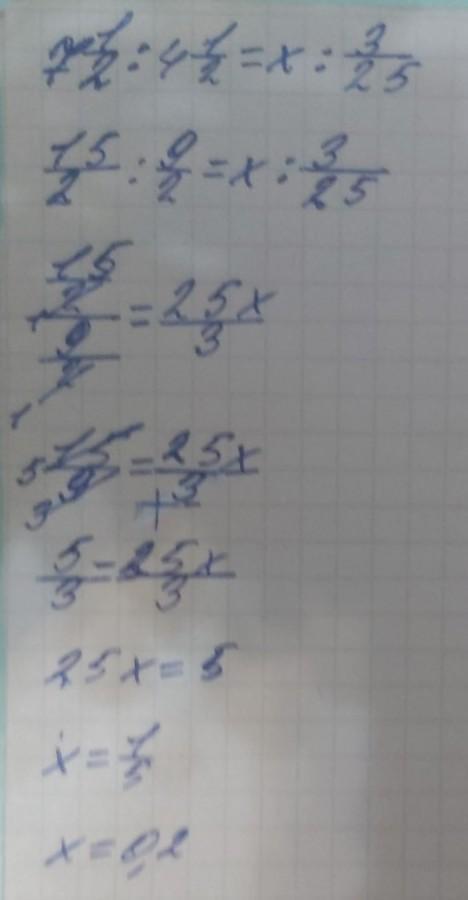 7 1/2 : 4 1/2 = x : 3/25
15/2 : 9/2 = x : 3/25
15/2 / 9/2 = 25x/3
5 15/9 3 = 25x/3
5/3 = 25x/3
25x = 5
x = 1/5
x = 0,2